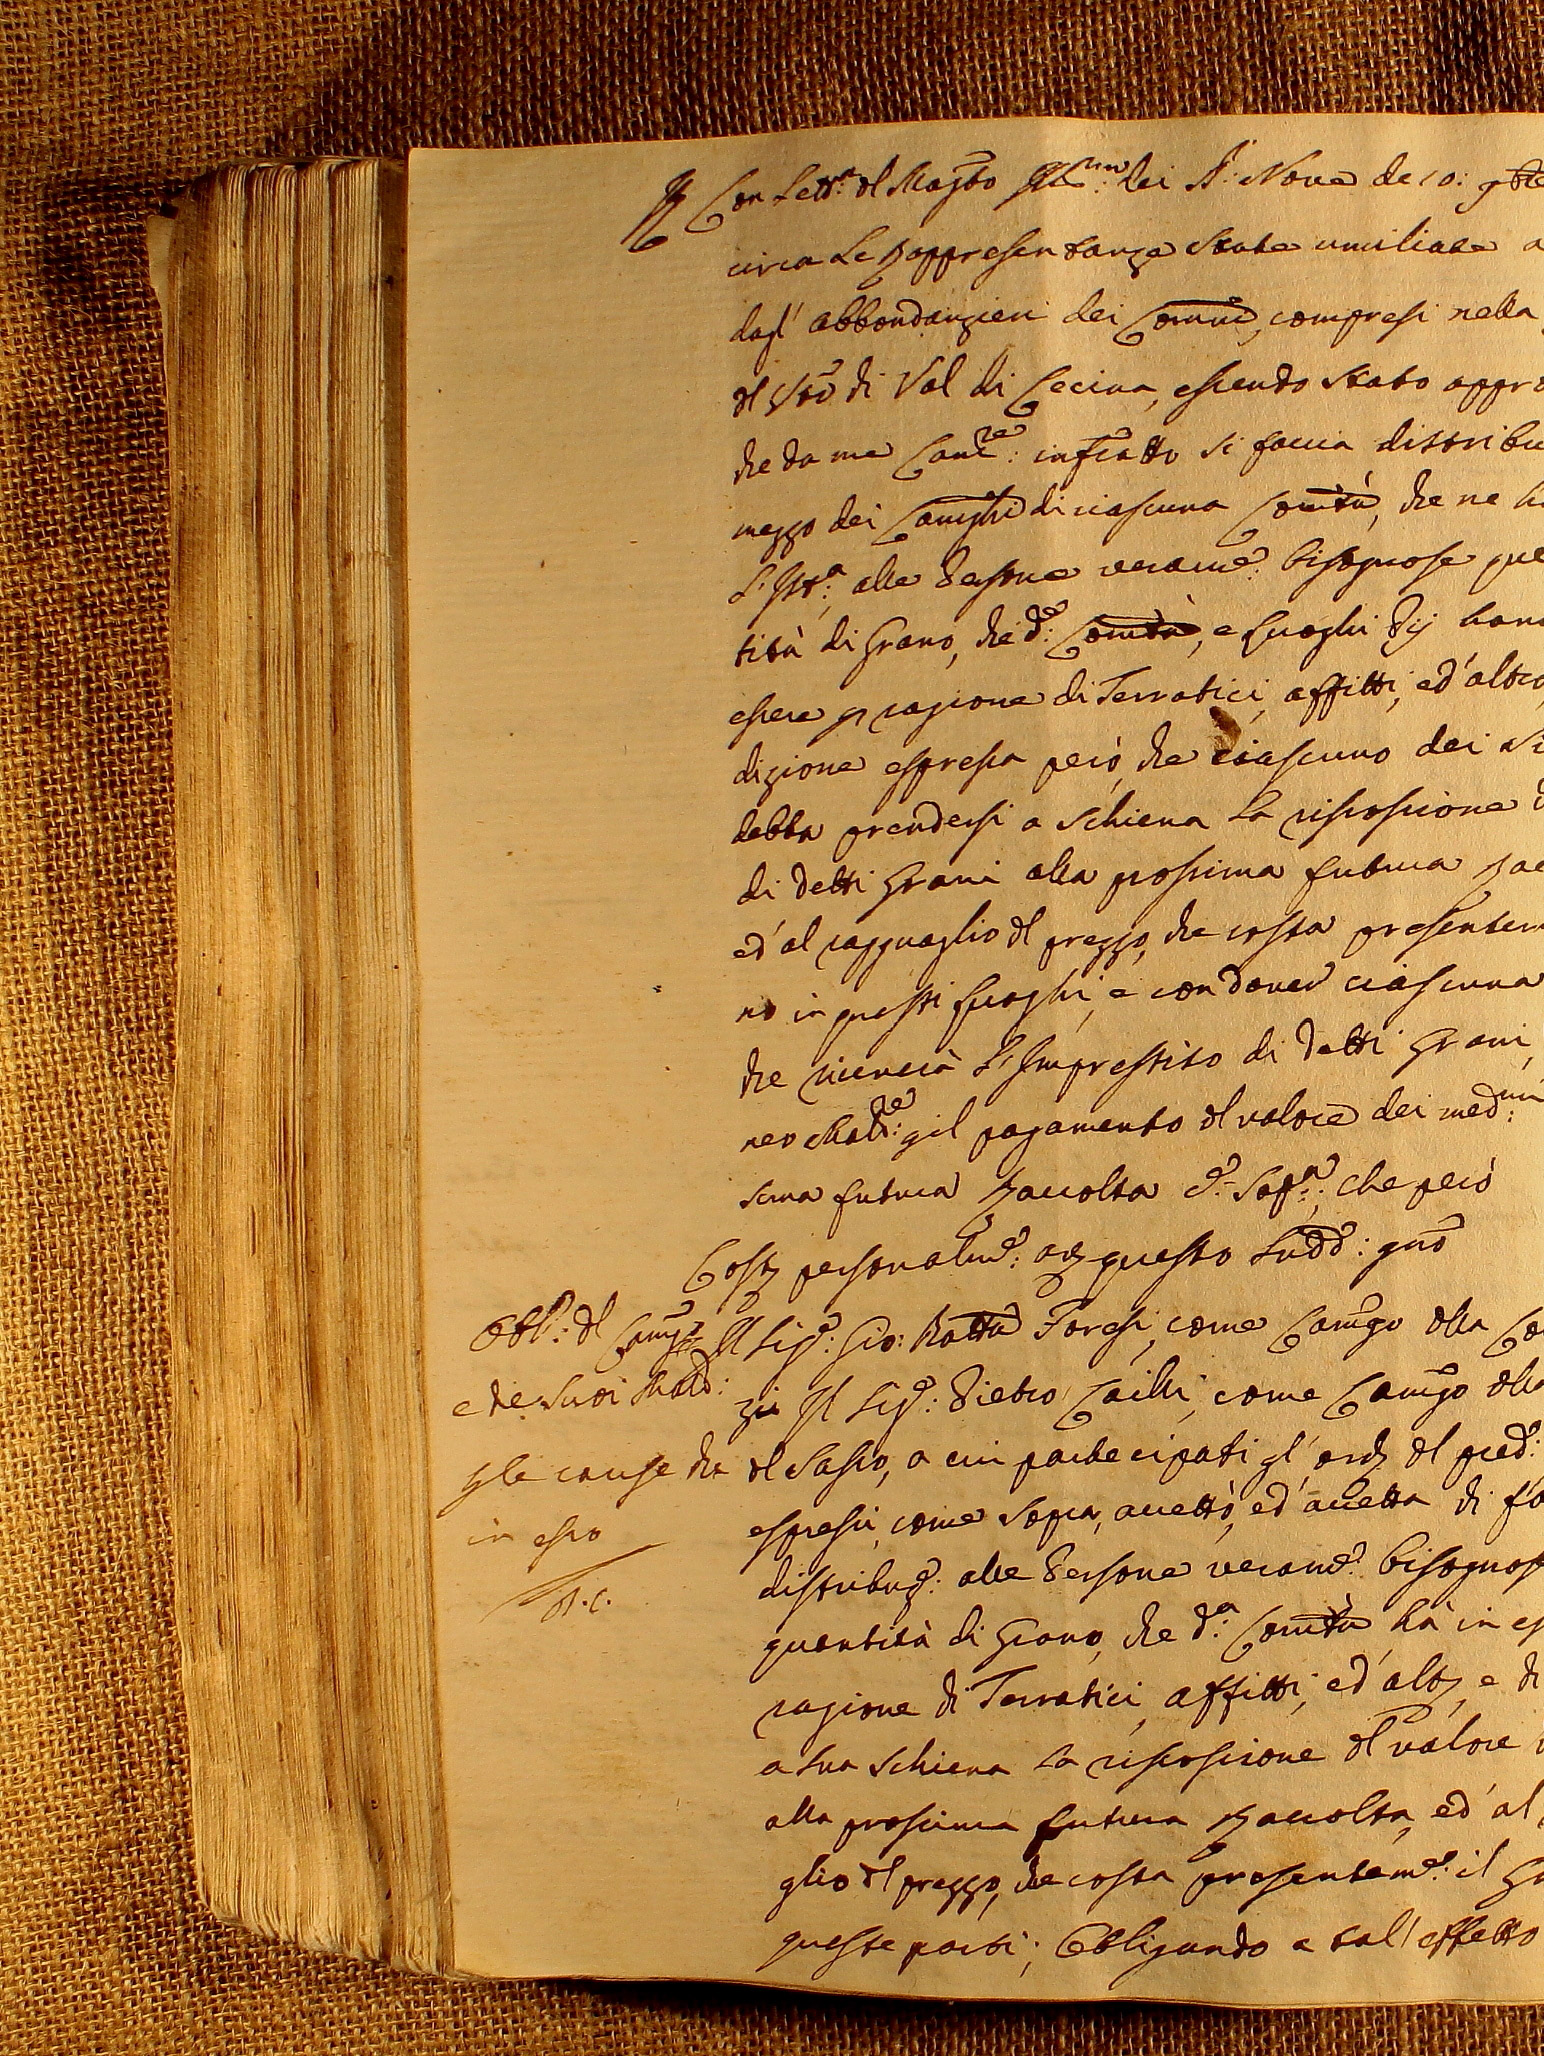 Con Lett.ra dl Mag.to Ill.mo: dei SS.ri Nove de 10: 9bre
circa Le Rappresentanze State umiliate a
dagl' abbondanzieri dei Comuni, compresi nella
dl Vic.to di Val di Cecina, essendo stato appro
che da me Canc.re: infratto si faccia distribu
mezzo dei Camghi di ciascuna Comtà, che ne h
L'Ist.a, alle Persone veram.e: bisognose que
tità di Grano, che d.e: Comtà, e Luoghi Pij hann
essere p ragione di Terratici, affitti, ed' altro,
dizione espressa però, che ciascuno dei Si
debba prendersi a Schiena La riscossione d
di detti Grani alla prossima futura rac
ed' al ragguaglio dl prezzo, che costa presentem
no in questi Luoghi, e con dover ciascuna
che riceverà L'Imprestito di detti Grani,
neo Mall.re: p il pagamento dl valore dei med.mi:
sima futura Raccolta e.- Sop.a: che però
Cost.i personalm.e: avti questo Sudd.o: gno
Obb.o: dl Camgo Il Sig.e: Gio: Batta Foresi, come Camgo dlla Co
e de Suoi Mall.d: zi Il Sig.e: Pietro Cailli, come Camgo dlla
p le cause che dl Sasso, a cui partecipati gl' ordi dl pred.o:
in esso espressi, come Sopra, accettò, ed' accetta di fa
distribuz.e: alle Persone veram.e: bisognos
A.C.
quantità di Grano, che d.a: Comtà hà in es
ragione di Terratici, affitti, ed' altri, e di
a sua Schiena La riscossione dl valore
alla prossima futura Raccolta, ed' al
glio dl prezzo, che costa presentem.e: il Gr
queste parti; Obbligando a tal' effetto